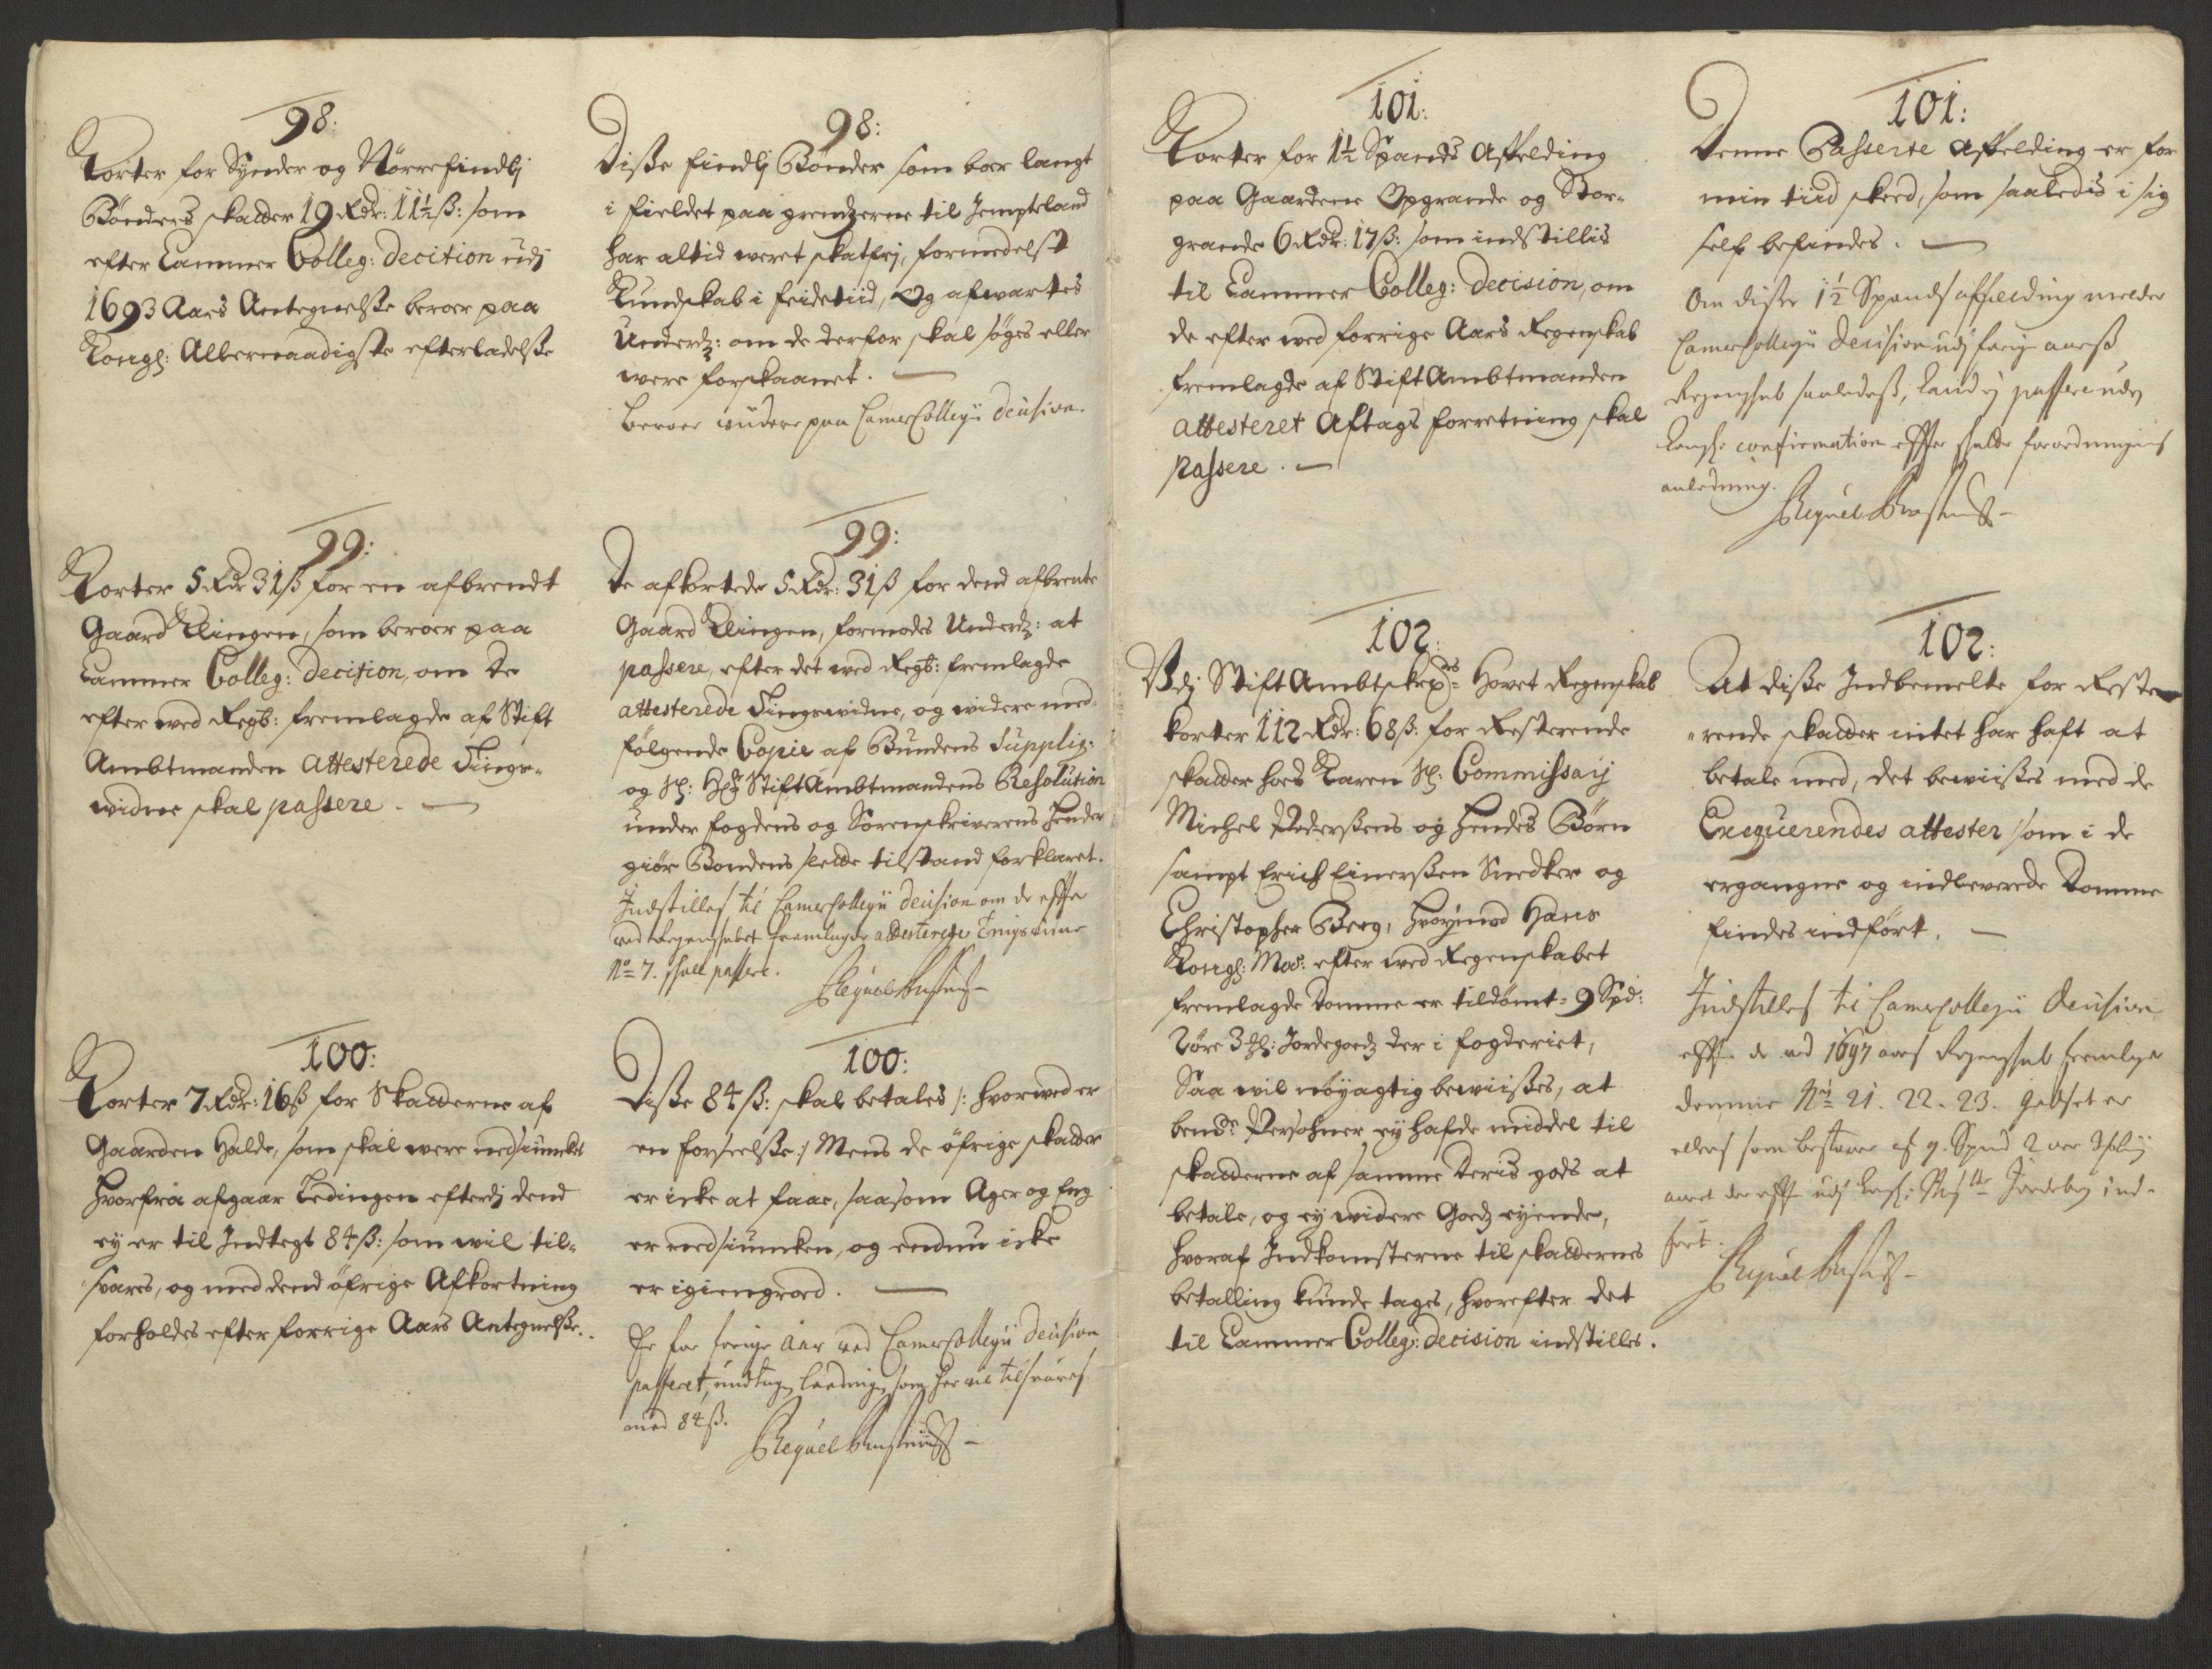 98:
Korter for Synder og Nörrefindlj
Bönders skatter 19 Rdr: 11½ ß: som
efter Cammer Colleg: Decition udj
1693 Aars Antegnelsse beroer paa
Kongl: Allernaadigste efterladelsse
98:
Disse findlj Bönder som boer langt
i fieldet paa grendzerne til Jempteland
har altid weret skatfrj, formedelst
Kundskab i feidetiid, og afwartes
Underd: om de derfor skal söges eller
were forskaanet.
Beroer widere paa CamerCollegii Decision.
99:
Korter 5 Rdr 31 ß for en afbrendt
Gaard Klingen, som beroer paa
Cammer Colleg: Decision, om De
efter wed Regb: fremlagde af Stift
Ambtmanden Attesterede Tings-
widne skal passere.
99:
De afkortede 5 Rdr: 31 ß for dend afbrente
Gaard Klingen, formodes Underd: at
passere, efter det wed Regb: fremlagde
attesterede Tingswidne, og widere med
fölgende Copie af Bundens Suppliq:
og Sl: Hr StiftAmbtmandens Resolution
under fogdens og Sorenskriverens hender
giör Bondens slette tilstand forklaret.
Indstilles til CamerCollegii Decision om de effter
ved Regenskabet fremlagde attesterede Tingswidne
No 7. skall passere.
100:
Korter 7 Rdr: 16 ß for Skatterne af
Gaarden Halde, som skal were nedsiuncket
hvorfra afgaar Ledingen efterdj dend
ey er til Indtegt 84 ß: som wil til-
svares, og med dend öfrige Afkortning
forholdes efter forrige Aars Antegnelsse.
100:
Disse 84 ß: skal betales /: hvorwed er
en forseelsse :/ Mens de öfrige skatter
er icke at faae, saasom Ager og Eng
er nedsiuncken, og endnu icke
er igiengroed.
Er for forrige Aar ved CamerCollegii Decision
passeret, undtagen leeding, som her vil tilsvares
med 84 ß.
101:
Korter for 1½ Spands Affelding
paa Gaardene Opgrande og Stor-
grande 6 Rdr: 17 ß: som indstillis
til Cammer Colleg: Decision, om
de efter wed forrige Aars Regenskab
fremlagde af StiftAmbtmanden
attesteret Aftags forretning skal
passere.
101:
Denne Passerte Affelding er for
min tiid skeed, som saaledis i sig
self befindes.
Om disse 1½ Spands affelding melder
CamerCollegii Decision udj forig aars
Regenskab saaledes, kand ej passere uden
Kongl: confirmation effter forordningens
anledning.
102:
Udj StiftAmbtskrs Hovet Regenskab
korter 112 Rdr: 68 ß: for Resterende
skatter hos Karen Sl: Commissarij
Michel Pederssens og hendes Börn
sampt Erich Einerssen Snedker og
Christopher Berg, hvorimod Hans
Kongl: May: efter wed Regenskabet
fremlagde Domme er tildömt 9 Spd:
2 öre 3 Jordegoedz der i fogderiet,
Saa wil nöyagtig bewiisses, at
bemte Persohner ey hafde middel til
skatterne af samme deris gods at
betale, og ey widere Goedz eyende,
hvoraf Indkomsterne til skatternes
betalling kunde tages, hvorefter det
til Cammer Colleg: decision indstilles.
102:
At disse Indbemelte for Reste-
rende skatter intet har haft at
betale med, det bewiisses med de
Exequerendes attester som i de
ergangne og indleverede Domme
findes indfört.
Indstilles til CamerCollegii Decision
effter de ved 1697 aars Regenskab fremlagde
domme No 21. 22. 23. godset er
ellers som bestaaer af 9. Spand 2 öre
aaret der effter udj Kongl: Maytts Jordebog ind-
fört.